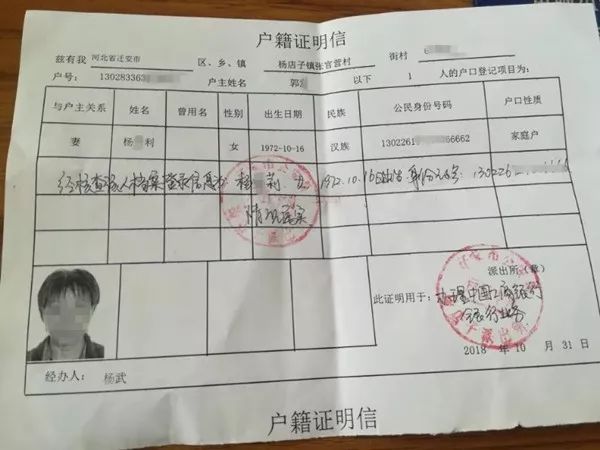 户籍证明信
兹有我 河北省迁安市 区、乡、镇 杨店子镇张官营村 街村 6
户号： 13028336 户主姓名 郭 以下 1 人的户口登记项目为：
与户主关系 姓名 曾用名 性别 出生日期 民族 公民身份号码 户口性质
妻 杨 利 女 1972-10-16 汉族 130226 66662 家庭户
经核查该人档案登录信息为 杨 莉 女 1972.10.16出生 身份证号：130226
情况属实
派出所（章）
此证明用于： 办理中国工商银行
银行业务
2018 年 10 月 31 日
经办人： 杨武
户籍证明信